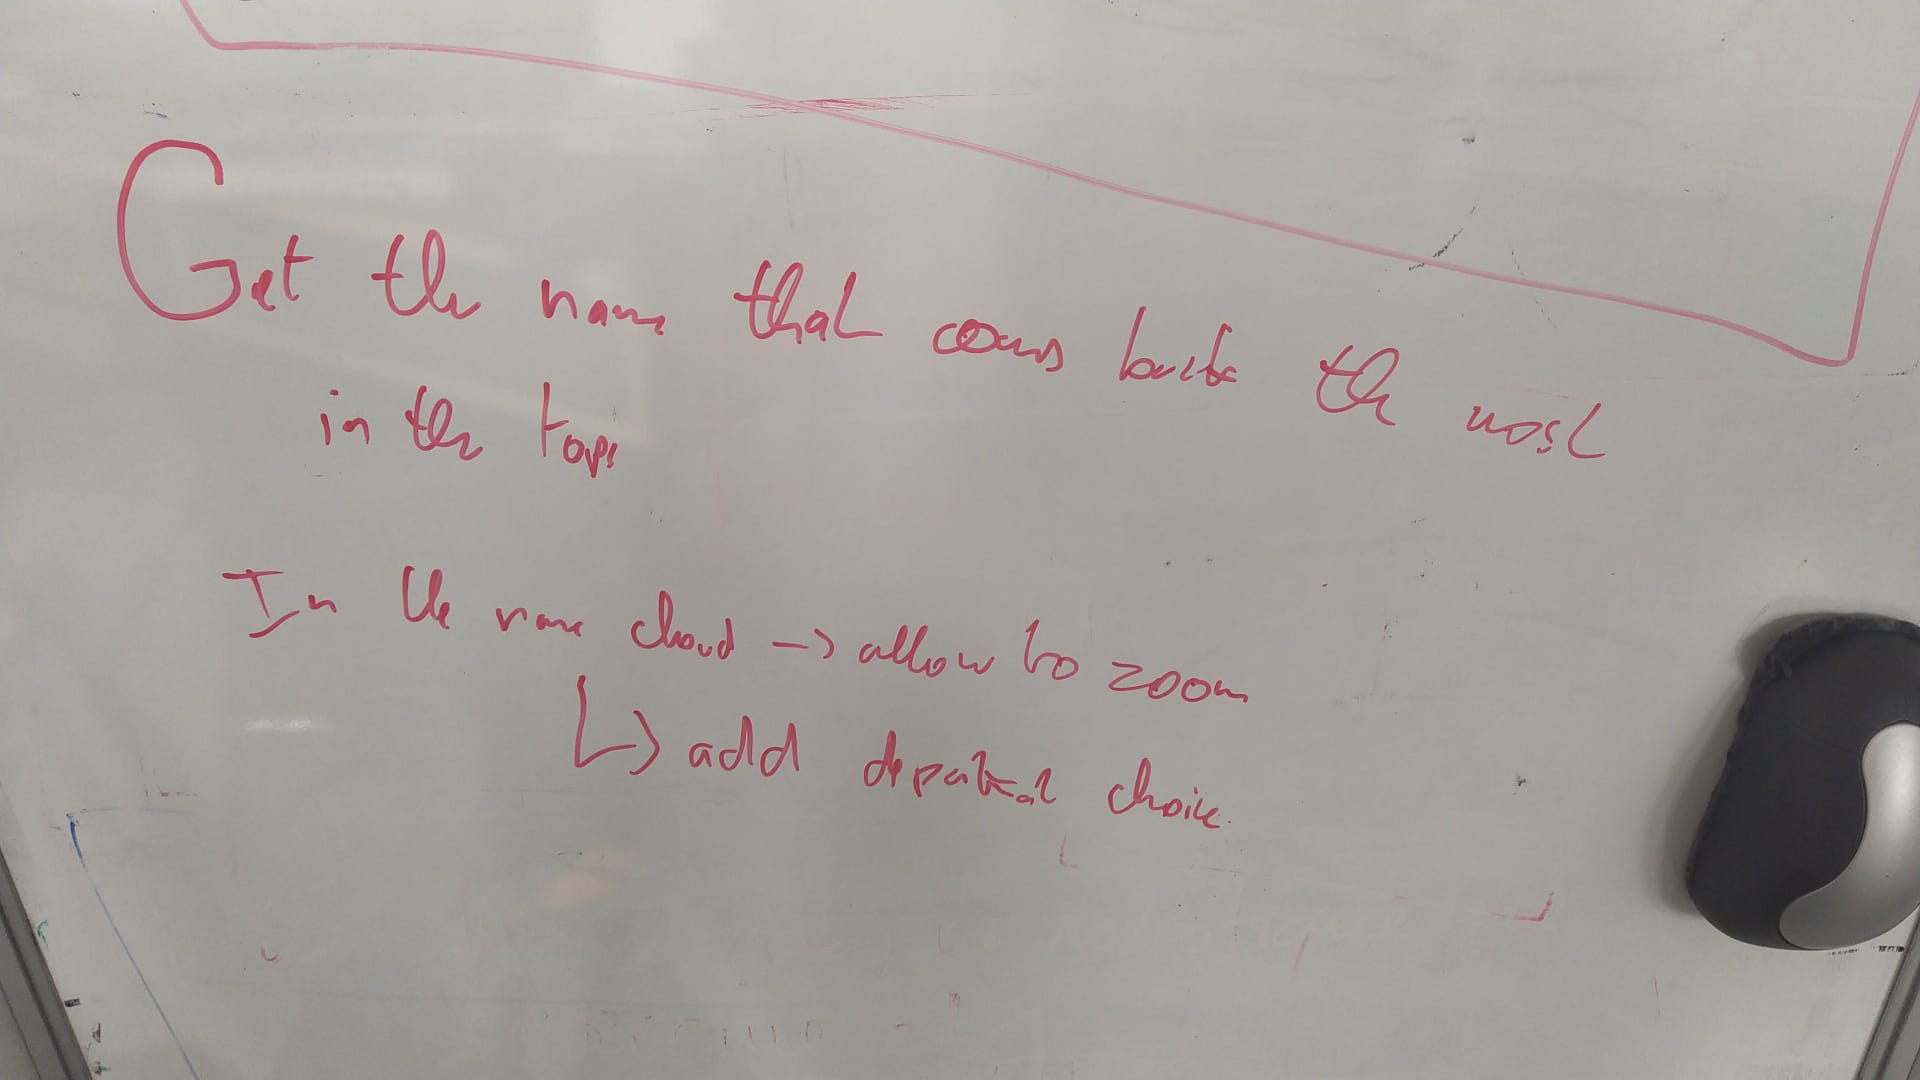 Get the name that comes back the most
in the tops
In the name cloud -> allow to zoom
↳ add choice